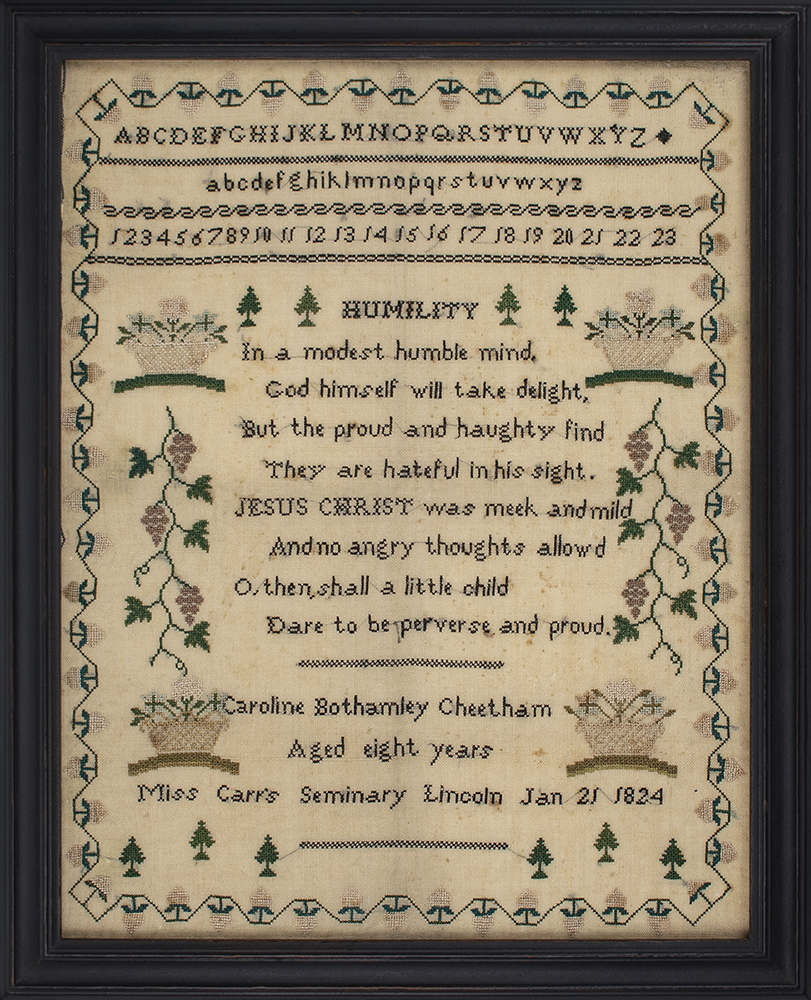 ABCDEFGHIJKLMNOPQRSTUVWXYZ
abcdefghiklmnopqrstuvwxyz
1 2 3 4 5 6 7 8 9 10 11 12 13 14 15 16 17 18 19 20 21 22 23
HUMILITY
In a modest humble mind,
God himself will take delight,
But the proud and haughty find
They are hateful in his sight.
JESUS CHRIST was meek and mild
And no angry thoughts allowd
O, then, shall a little child
Dare to be perverse and proud.
Caroline Bothamley Cheetham
Aged eight years
Miss Carrs Seminary Lincoln Jan 21 1824